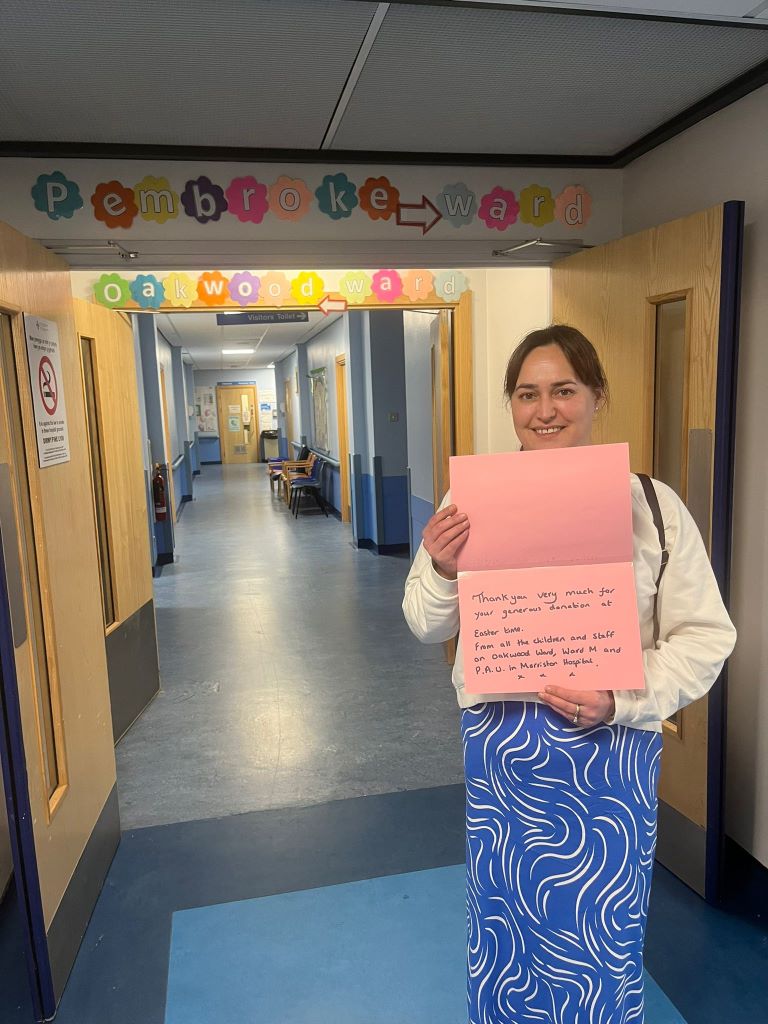 Pembroke ward
Oakwood ward
Visitors Toilet
Thankyou very much for
your generous donation at
Easter time.
From all the children and staff
on Oakwood Ward, Ward M and
P.A.U. in Morriston Hospital.
x x x